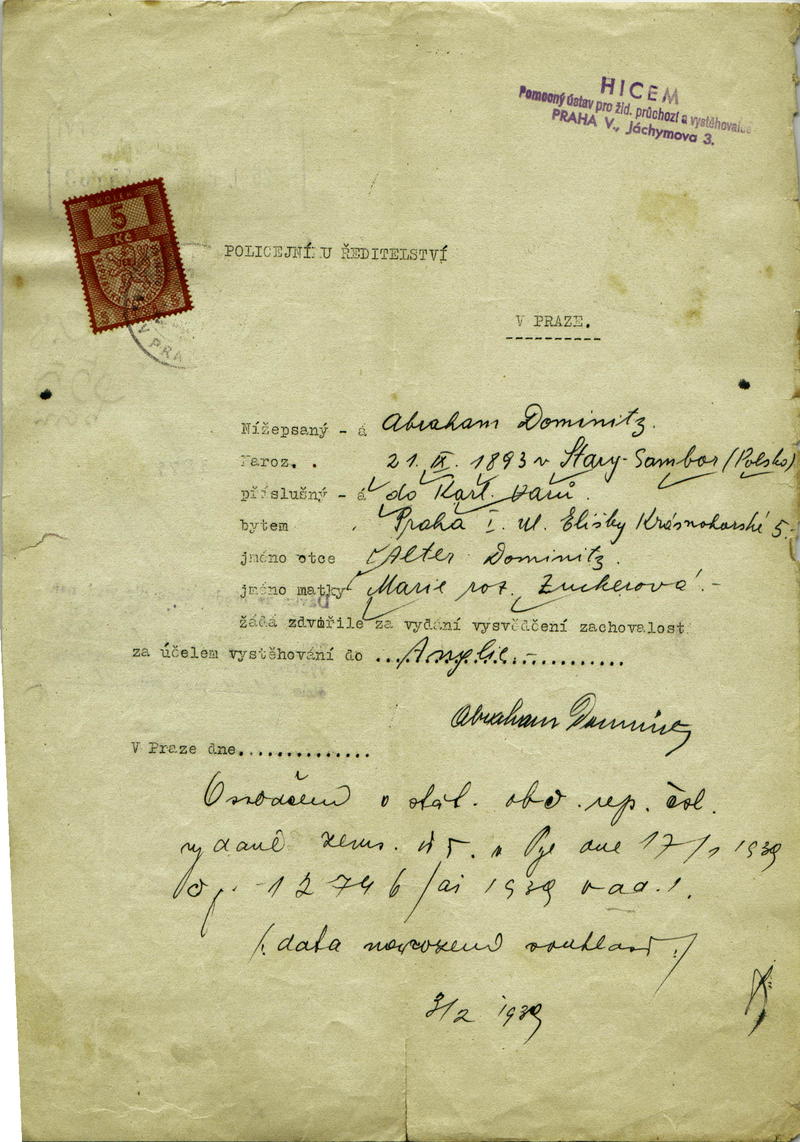 HICEM
Pomocný ústav pro žid. průchozí a vystěhovalce
PRAHA V., Jáchymova 3.
KOLEK
5
Kč
POLICEJNÍMU ŘEDITELSTVÍ
V PRAZE.
V PRA
Nížepsaný - á Abraham Dominitz.
Naroz. . 21. IX. 1893 v Stary-Sambor (Polsko)
příslušný - á do Karl. Varů.
bytem Praha I. ul. Elišky Krásnohorské 5.-
jméno otce Alter Dominitz.
jméno matky Marie roz. Zuckerová.-
žádá zdvořile za vydání vysvědčení zachovalost
za účelem vystěhování do ...Anglie...............
Abraham Dominitz
V Praze dne..............
Osvědčení o stát. obč. rep. čsl.
vydané zems. úř. v Pze dne 17/1 1939
čj. 12746/ai 1939 v ad. 1.
(: data narození souhlasí :)
3/2 1939